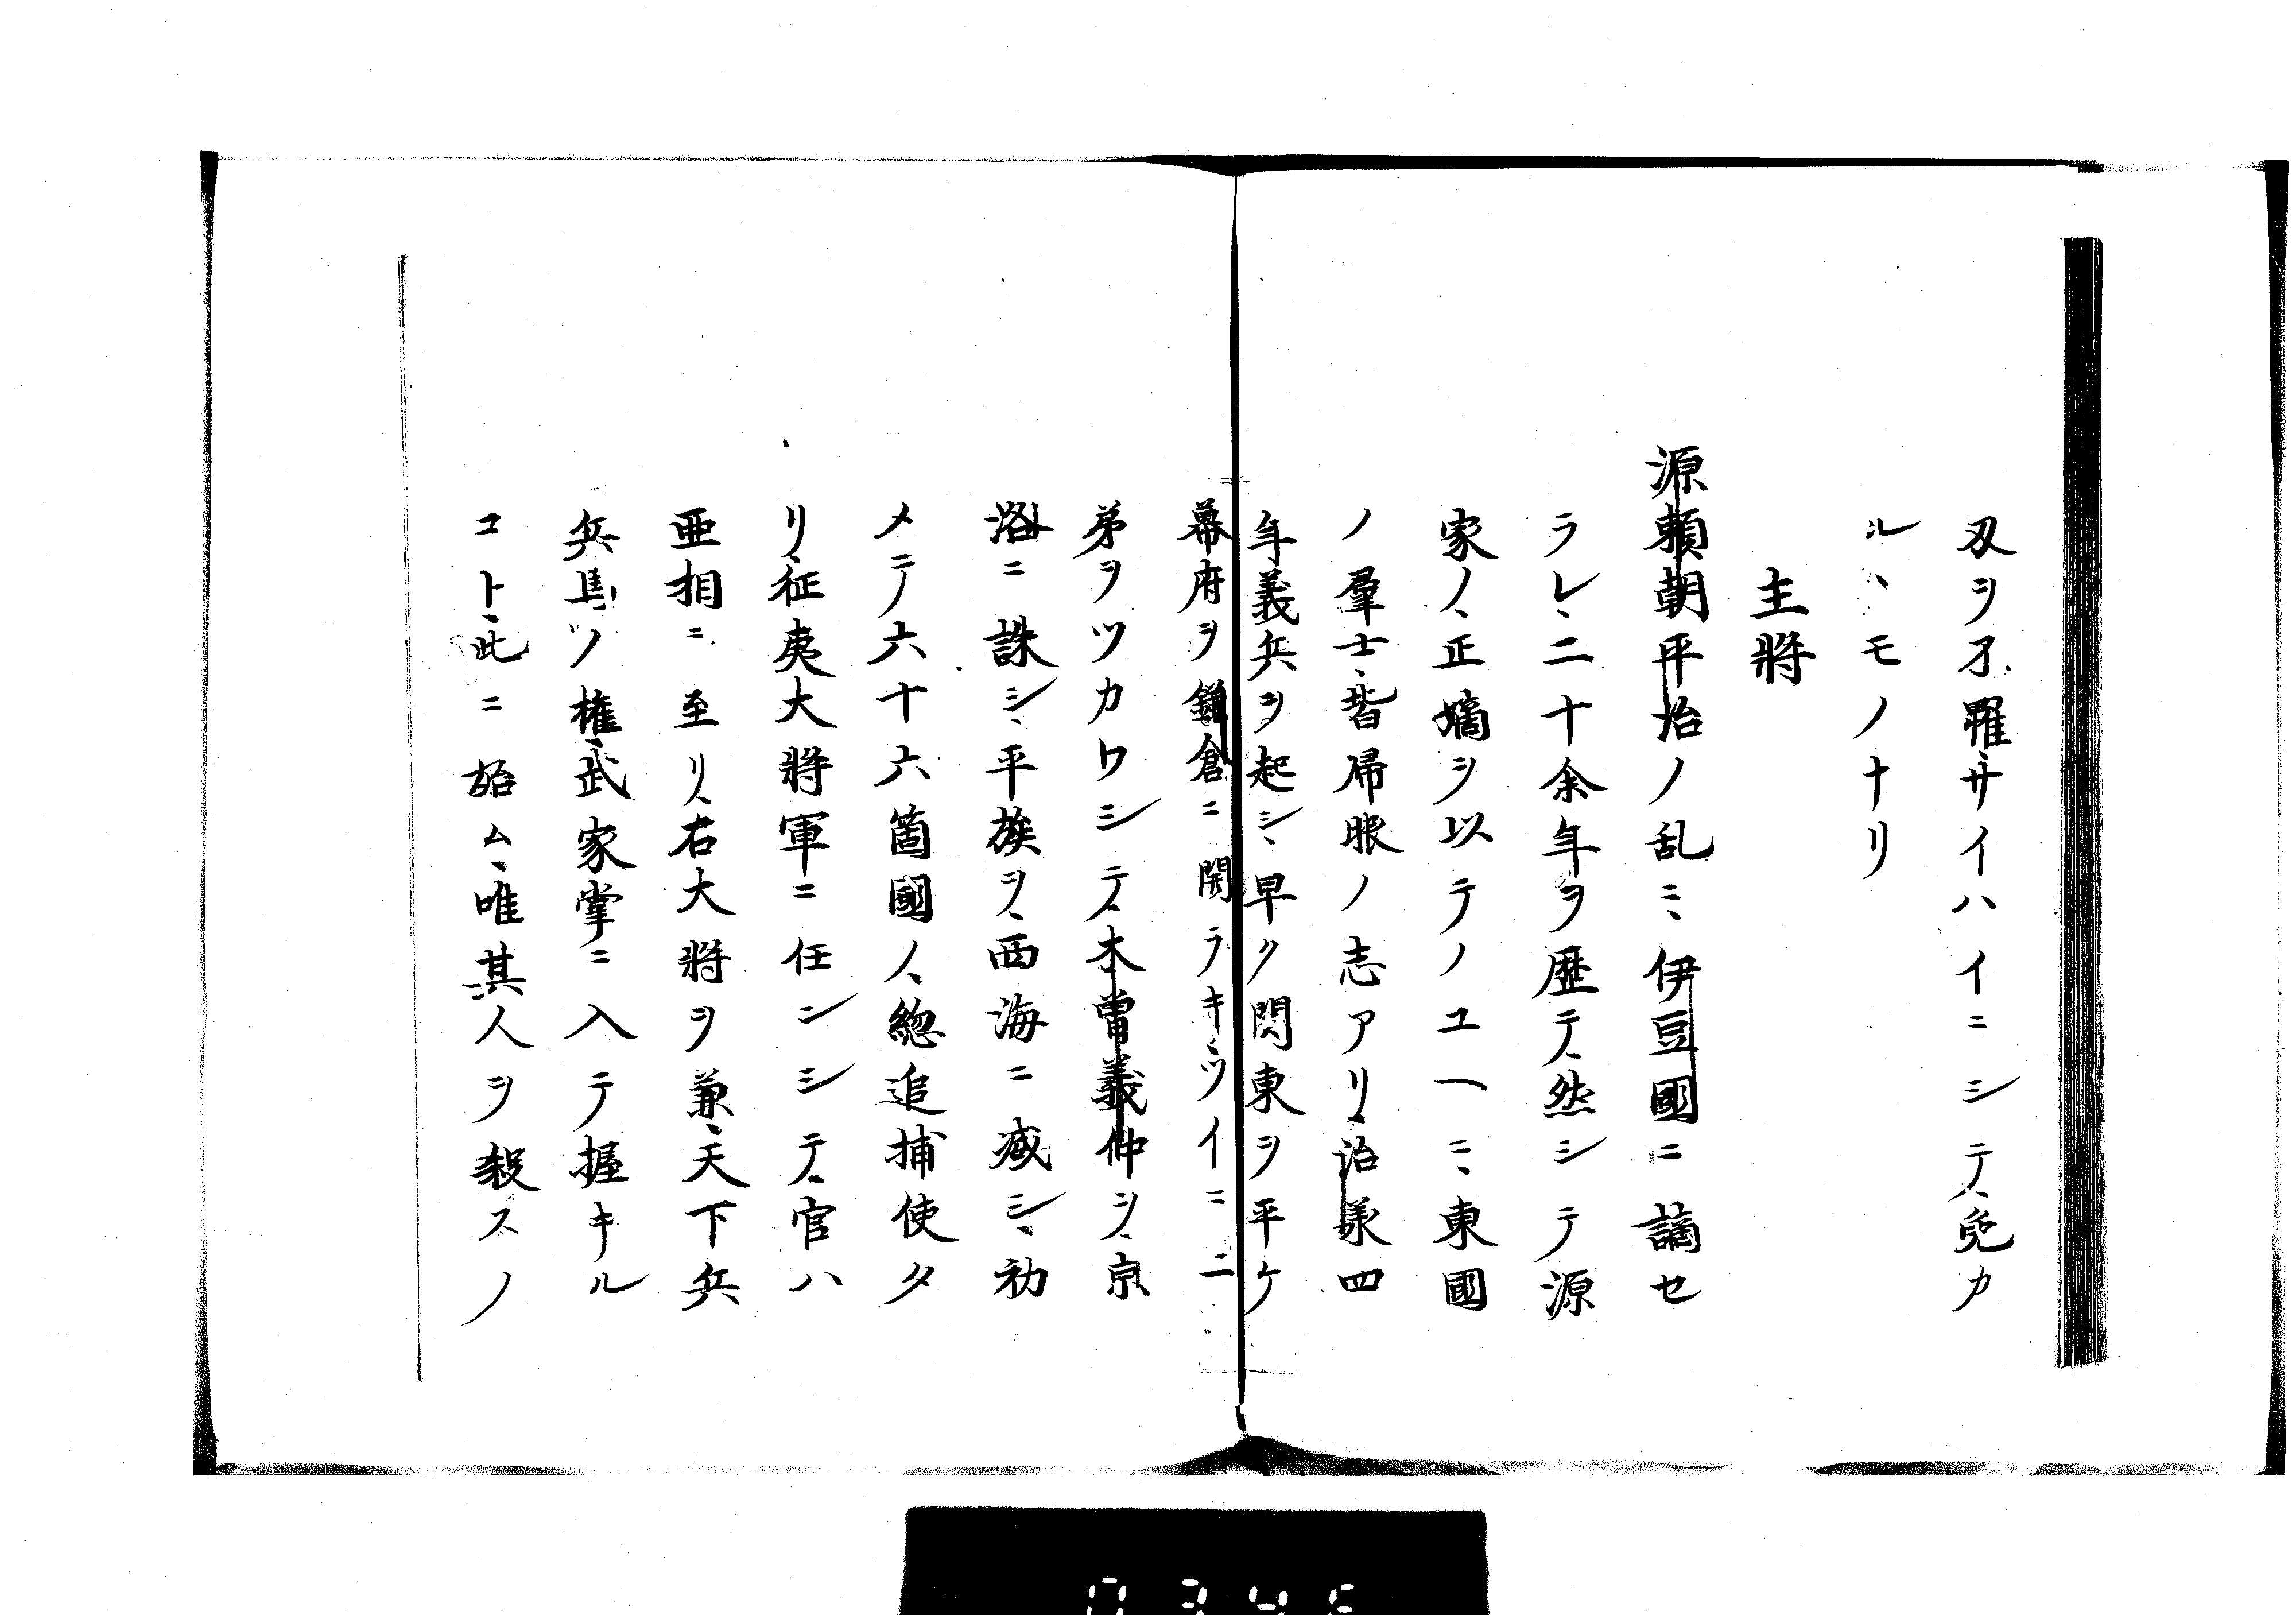 刄ヲ不罹サイハイニシテ、免カ
ルヽモノナリ
主將
源頼朝平治ノ乱ニ、伊豆國ニ謫セ
ラレ、二十余年ヲ歴テ、然シテ源
家ノ、正嫡ヲ以テノユヘニ、東國
ノ羣士、皆帰服ノ志アリ、治承四
年義兵ヲ起シ、早ク関東ヲ平ケ
幕府ヲ鎌倉ニ開ラキ、ツイニ二
弟ヲツカワシテ、木曽義仲ヲ、京
洛ニ誅シ、平族ヲ、西海ニ滅シ、初
メテ六十六箇國ノ、総追捕使タ
リ、征夷大將軍ニ任ンシテ、官ハ
亜相ニ至リ、右大將ヲ兼、天下兵
兵馬ノ權、武家掌ニ入テ握キル
コト、此ニ始ム、唯其人ヲ殺スノ